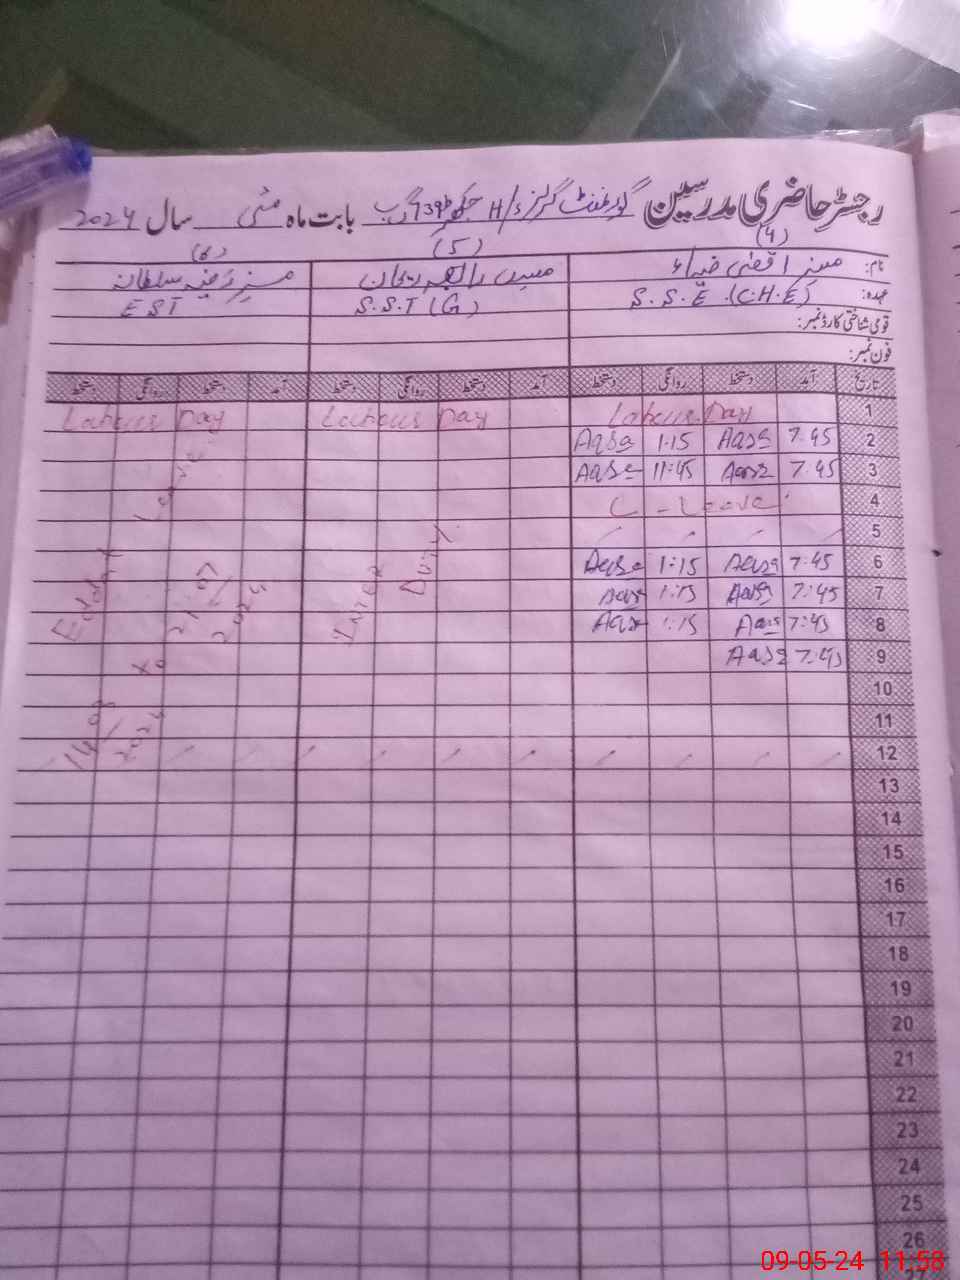 رجسٹر حاضری مدرسین گورنمنٹ گرلز H/S چک نمبر 139 گ ب بابت ماہ مئی سال 2024
(4) (5) (6)
نام: مسز اقصیٰ ضیاء مس رابعہ ریحان مسز رضیہ سلطانہ
عہدہ: S.S.E (C.H.E) S.S.T (G) EST
قومی شناختی کارڈ نمبر:
فون نمبر:
تاریخ آمد دستخط روانگی دستخط آمد دستخط روانگی دستخط آمد دستخط روانگی دستخط
1 Labour Day Labour Day Labour Day
2 7:45 Aqsa 1:15 Aqsa
3 7:45 Aqsa 11:45 Aqsa
4 C - Leave
5
6 7:45 Aqsa 1:15 Aqsa
7 7:45 Aqsa 1:15 Aqsa
8 7:45 Aqsa 1:15 Aqsa
9 7:45 Aqsa
INTER Duty
Leave
21-07/2024
To
14-03/2024
10
11
12
13
14
15
16
17
18
19
20
21
22
23
24
25
26
27
09-05-24 11:58